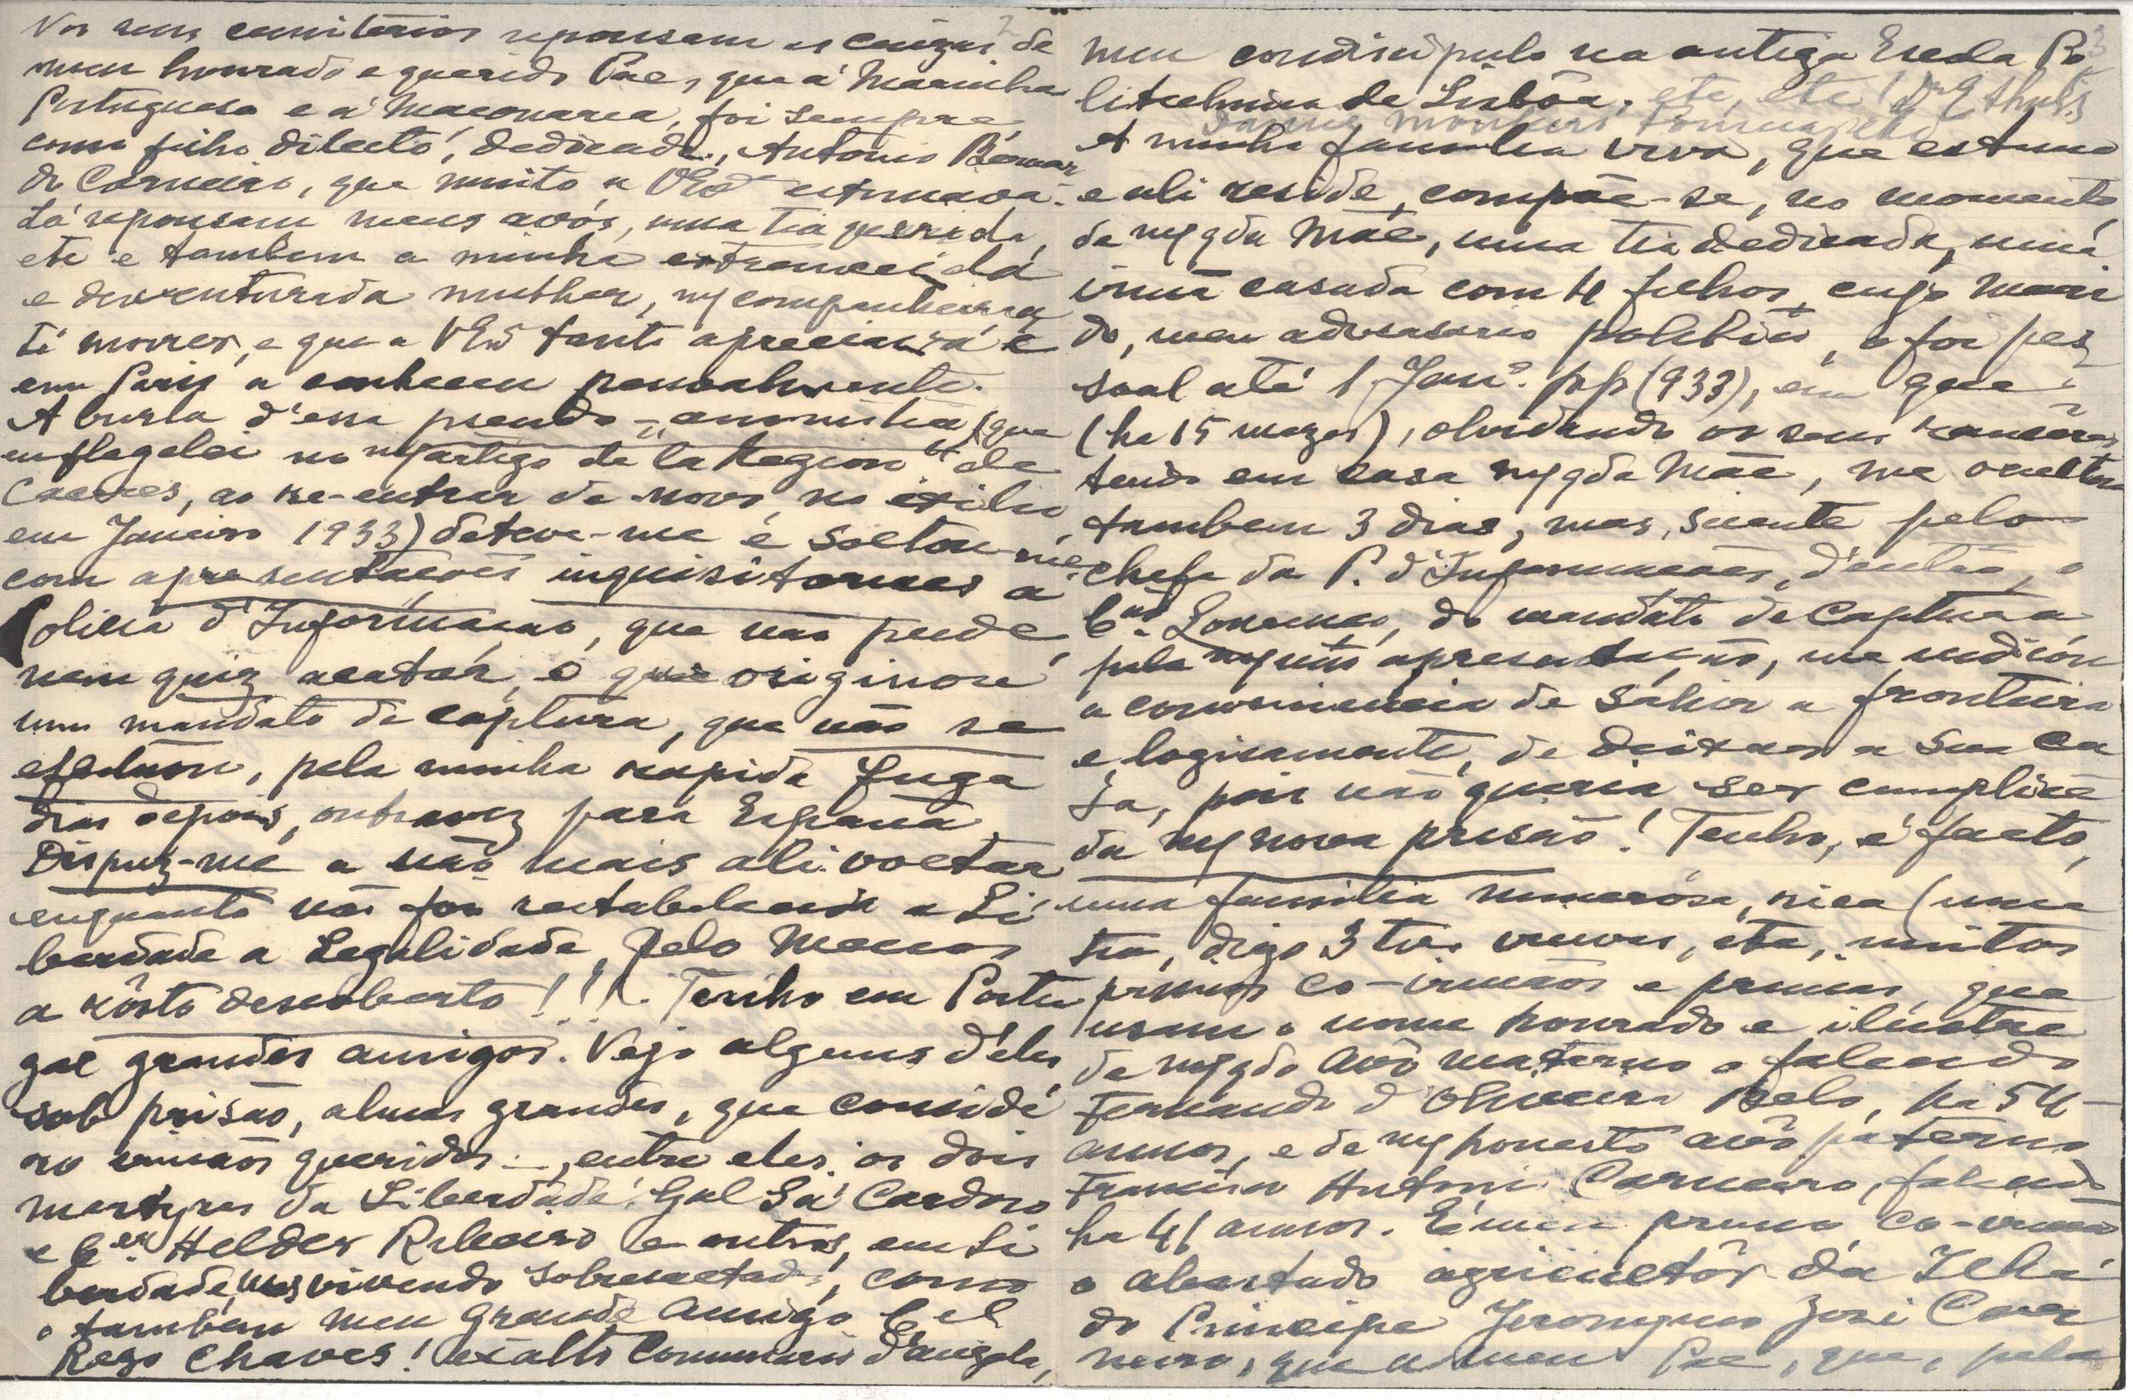 Nos seus cemiterios repousam as cinzas de
meu honrado e querido Pae, que á Marinha
Portuguesa e á Maçonaria, foi sempre,
como filho dilecto, dedicado, Antonio
do Carneiro, que muito a VExª estimava.
Lá repousam meus avós, uma tia querida,
etc e tambem a minha estremecida
e desventurada mulher, mª companheira
té morrer, e que a VExª tanto apreciava e
em Paris a conheceu pessoalmente.
A burla d'essa pseudo-"amnistia" (que
eu flagelei no mº artigo de "La Region" de
Caceres, ao re-entrar de novo, no exilio,
em Janeiro 1933) deteve-me e soltou-me,
com apresentações inquisitoriaes a
Policia d'Informação, que não pude,
nem quiz acatar, o que originou
um mandato de captura, que não se
efectuou, pela minha rapida fuga
dias depois, outra vez para España.
Dispuz-me a não mais ali voltar
enquanto não for restabelecida a Li
berdade a Legalidade, pelo menos
a rôsto descoberto!!! Tenho em Portu
gal grandes amigos. Vejo alguns d'eles
sob prisão, almas grandes, que conside
ro irmãos queridos —, entre eles, os dois
martyres da Liberdade: Gal Sá Cardoso
e Cel Helder Ribeiro e outros, em li
berdade, mas vivendo sobresaltados, como
o tambem meu grande amigo Cel
Rego Chaves! ex alto Comissario d'Angola,
3
meu condiscipulo na antiga Escola Po
litechnica de Lisbôa, etc, etc!
A minha familia viva, que estimo
e ali reside, compõe-se, no momento,
de mª qda Mãe, uma tia dedicada, uma
irmã casada com 4 filhos, cujo mari
do, meu adversario politico, o foi pes
soal até 1 Janº. pp (933), em que
(ha 15 mezes), olvidando os seus rancores
tendo em casa mª qda Mãe, me ocultou
tambem 3 dias, mas, sciente pelo
chefe da P. d'Informações, d'então, o
Cap. Lourenço, do mandato de captura
pela mª não apresentação, me indicou
a conveniencia de sahir a fronteira
e, logicamente, de deixar a sua ca
sa, pois não queria ser cumplice
da mª nova prisão! Tenho, é facto,
uma familia numerosa, rica (uma
tia, digo 3 tias viuvas, etc, muitos
primos co-irmãos e primas, que
usam o nome honrado e ilustre
de mº qdo avô materno o falecido
Fernando d'Oliveira Belo, ha 54
annos, e de mº honesto avô paterno
Francisco Antonio Carneiro, falecido
ha 41 annos. É meu primo, co-irmão
o abastado agricultôr da Ilha
do Principe Jeronymo José Car
neiro, que a meu Pae, que, pela